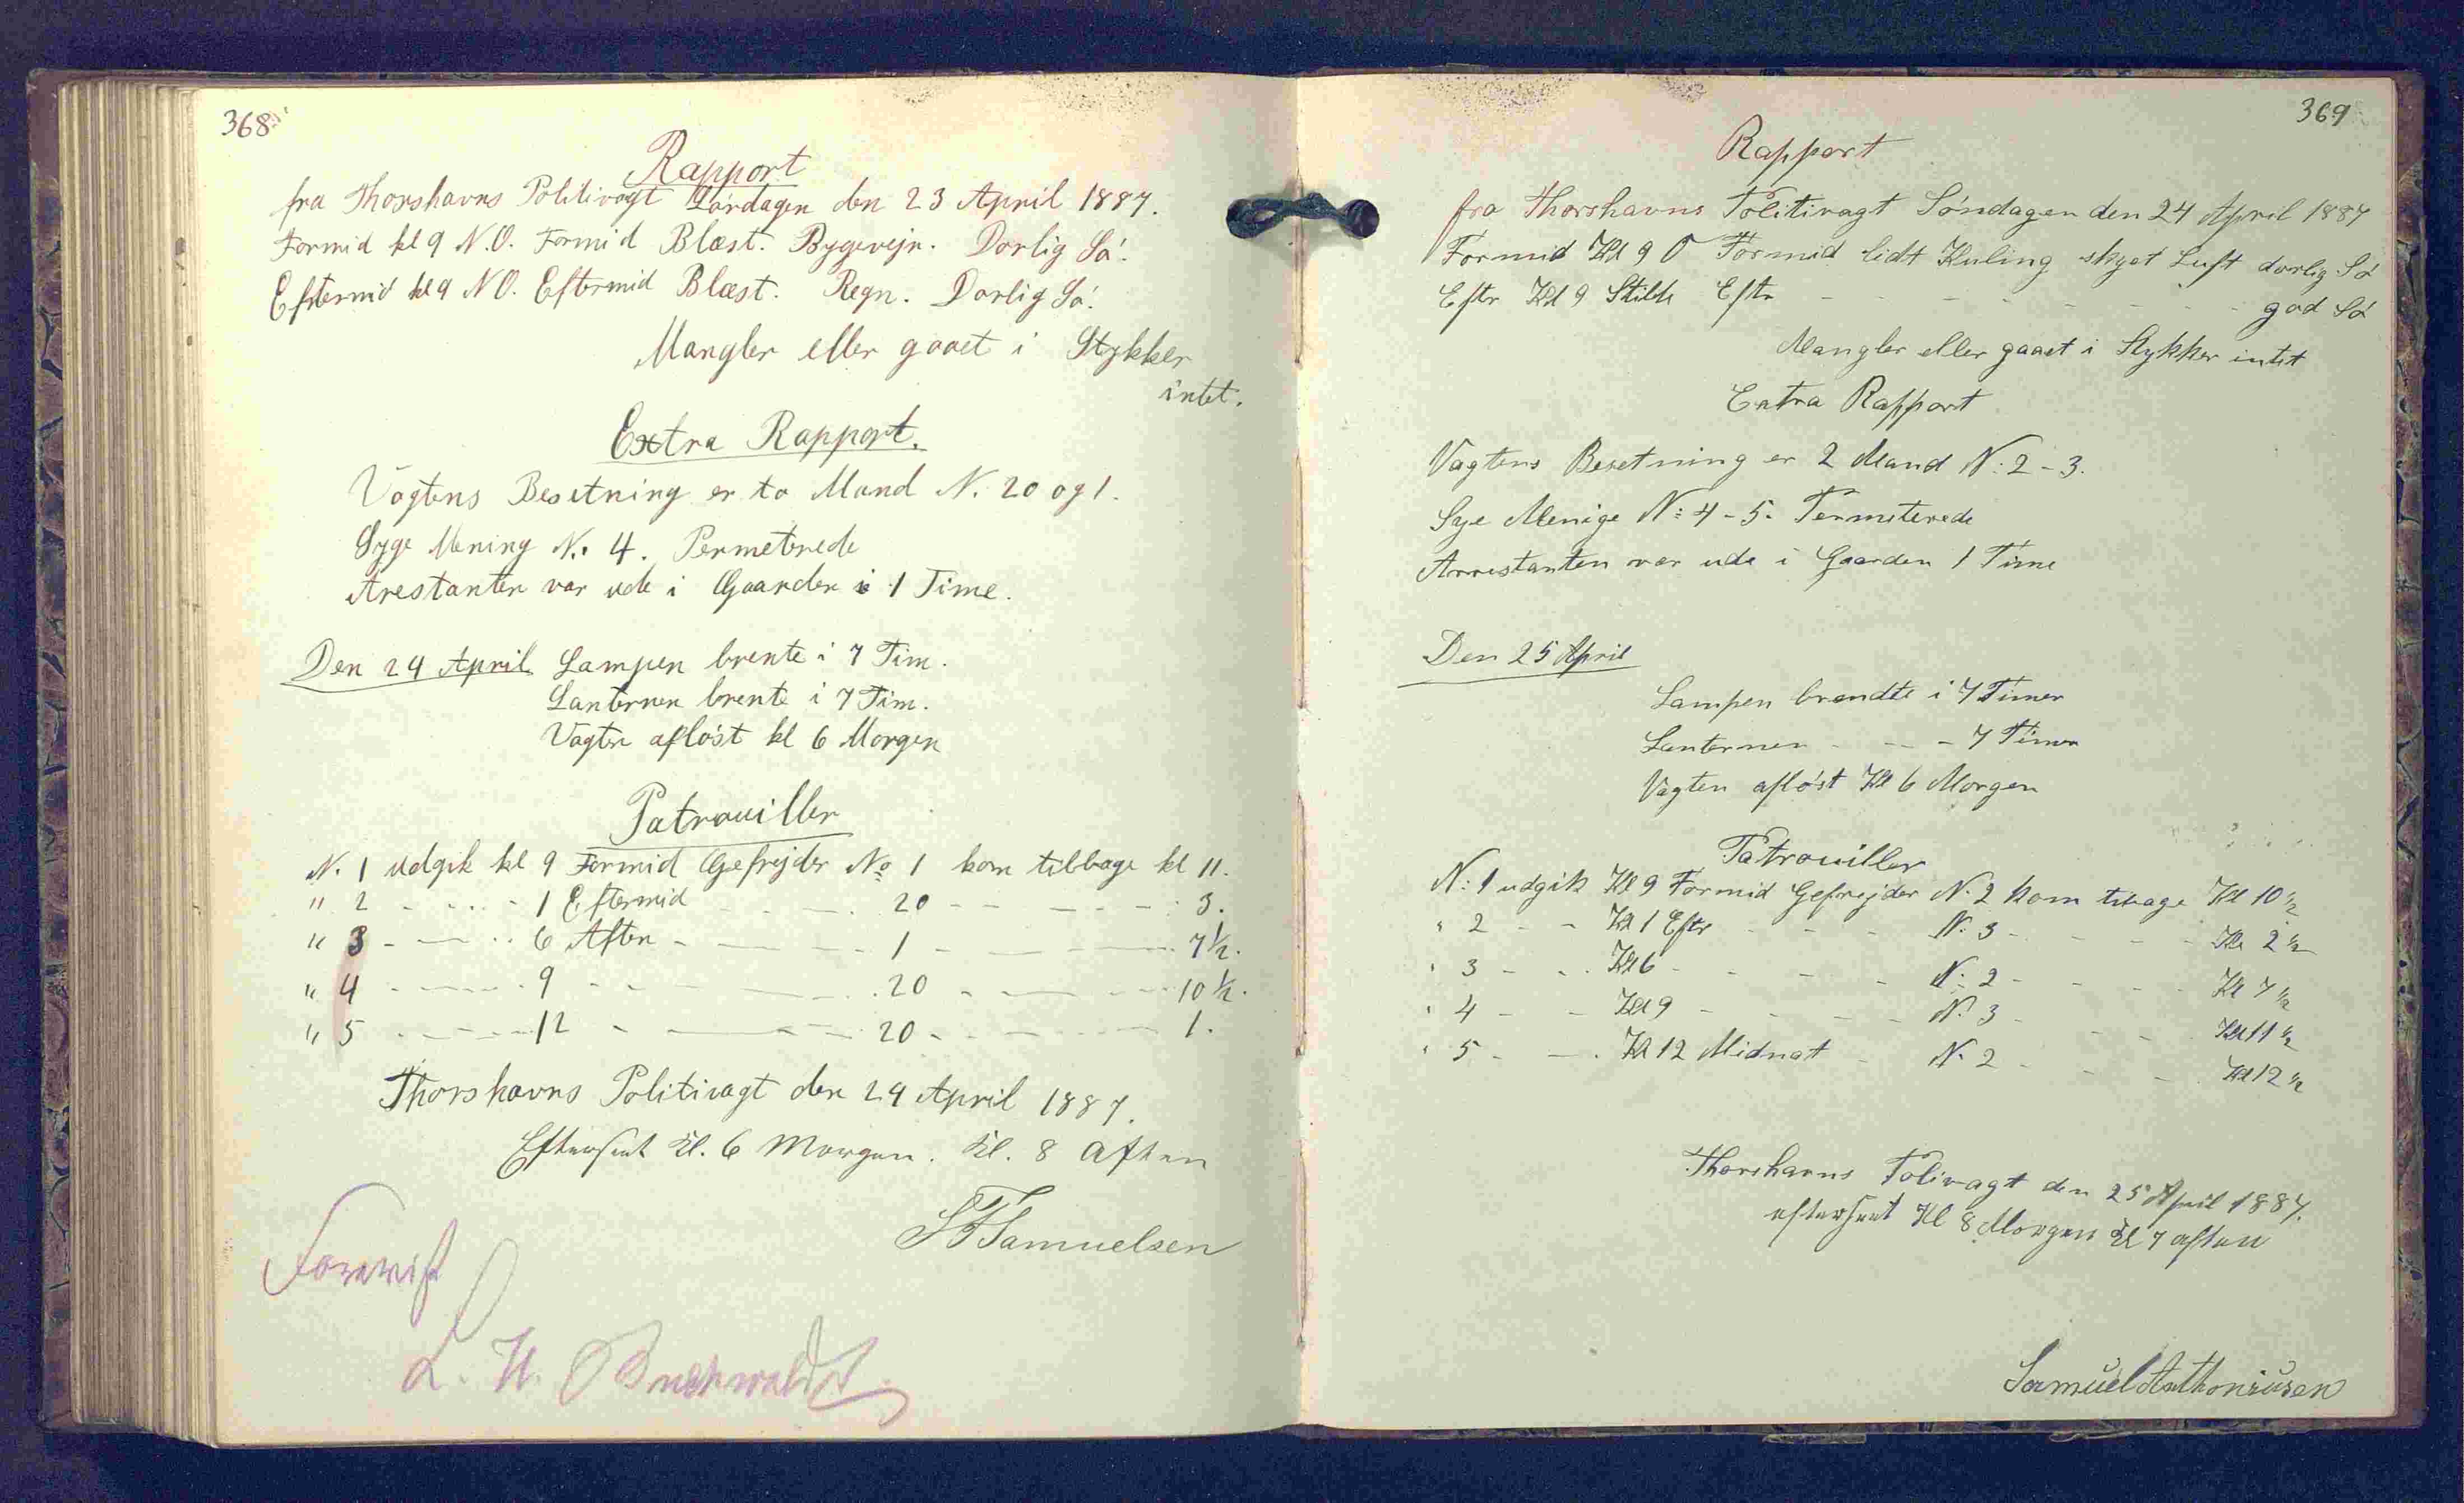 368
Rapport
fra Thorshavns Politivagt Lørdagen den 23 April 1887.
Formid kl 9 N.O. Formid Blæst. Bygevejr. Dorlig Sø.
Eftermid kl 9 NO. Eftermid Blæst. Regn. Dorlig Sø.
Mangler eller gaaet i Stykker
intet.
Extra Rapport.
Vagtens Besetning er to Mand N. 20 og 1.
Syge Mening No. 4. Permeterede
Arestanten var ude i Gaarden i 1 Time.
Den 24 April Lampen brente i 7 Tim.
Lanternen brente i 7 Tim.
Vagten afløst kl 6 Morgen
Patrouiller
N. 1 udgik kl 9 Formid Gefrejder No 1 kom tilbage kl 11.
" 2 - - - - 1 Eftermid - - - 20 - - - - - 3.
" 3 - - - - 6 Aften - - - - 1 - - - - 7½.
" 4 - - - - 9 - - - - 20 - - - - 10½.
" 5 - - - - 12 - - - - 20 - - - - 1.
Thorshavns Politivagt den 24 April 1887.
Efterseet Kl. 6 Morgen. Kl. 8 Aften
Samuelsen
Forevist
L. H. Buchwaldt
369
Rapport
fra Thorshavns Politivagt Søndagen den 24 April 1887
Formid Kl 9 O Formid lidt Kuling skyet Luft dorlig Sø
Eftr Kl 9 Stille Eftr - - - - - - - - god Sø
Mangler eller gaaet i Stykker intet
Extra Rapport
Vagtens Besetning er 2 Mand N: 2 - 3.
Syge Menige N: 4 - 5. Permiterede
Arrestanten var ude i Gaarden 1 Time
Den 25 April
Lampen brendte i 7 Timer
Lanternen - - - 7 Timer
Vagten afløst Kl 6 Morgen
Patrouiller
N: 1 udgik Kl 9 Formid Gefrejder N. 2 kom tibage Kl 10½
" 2 - - Kl 1 Eftr - - - N. 3 - - - - Kl 2½
" 3 - - - Kl 6 - - - - N: 2 - - - - Kl 7½
" 4 - - Kl 9 - - - - N. 3 - - - - Kl 11½
" 5 - - - Kl 12 Midnat - N. 2 - - - - Kl 12½
Thorshavns Polivagt den 25 April 1887.
efterseet Kl 8 Morgen Kl 7 aften
Samuel Anthoniusen